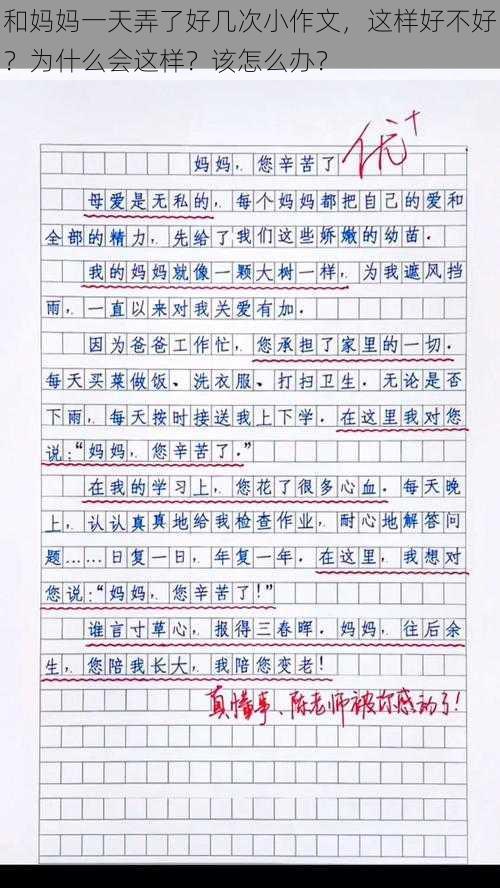 和妈妈一天弄了好几次小作文，这样好不好
？为什么会这样？该怎么办？
妈妈，您辛苦了
优+
母爱是无私的，每个妈妈都把自己的爱和
全部的精力，先给了我们这些娇嫩的幼苗．
我的妈妈就像一颗大树一样，为我遮风挡
雨，一直以来对我关爱有加．
因为爸爸工作忙，您承担了家里的一切．
每天买菜做饭、洗衣服、打扫卫生．无论是否
下雨，每天按时接送我上下学．在这里我对您
说：“妈妈，您辛苦了．”
在我的学习上，您花了很多心血．每天晚
上，认认真真地给我检查作业，耐心地解答问
题……日复一日，年复一年．在这里，我想对
您说：“妈妈，您辛苦了！”
谁言寸草心，报得三春晖．妈妈，往后余
生，您陪我长大，我陪您变老！
真懂事、陈老师被你感动了！